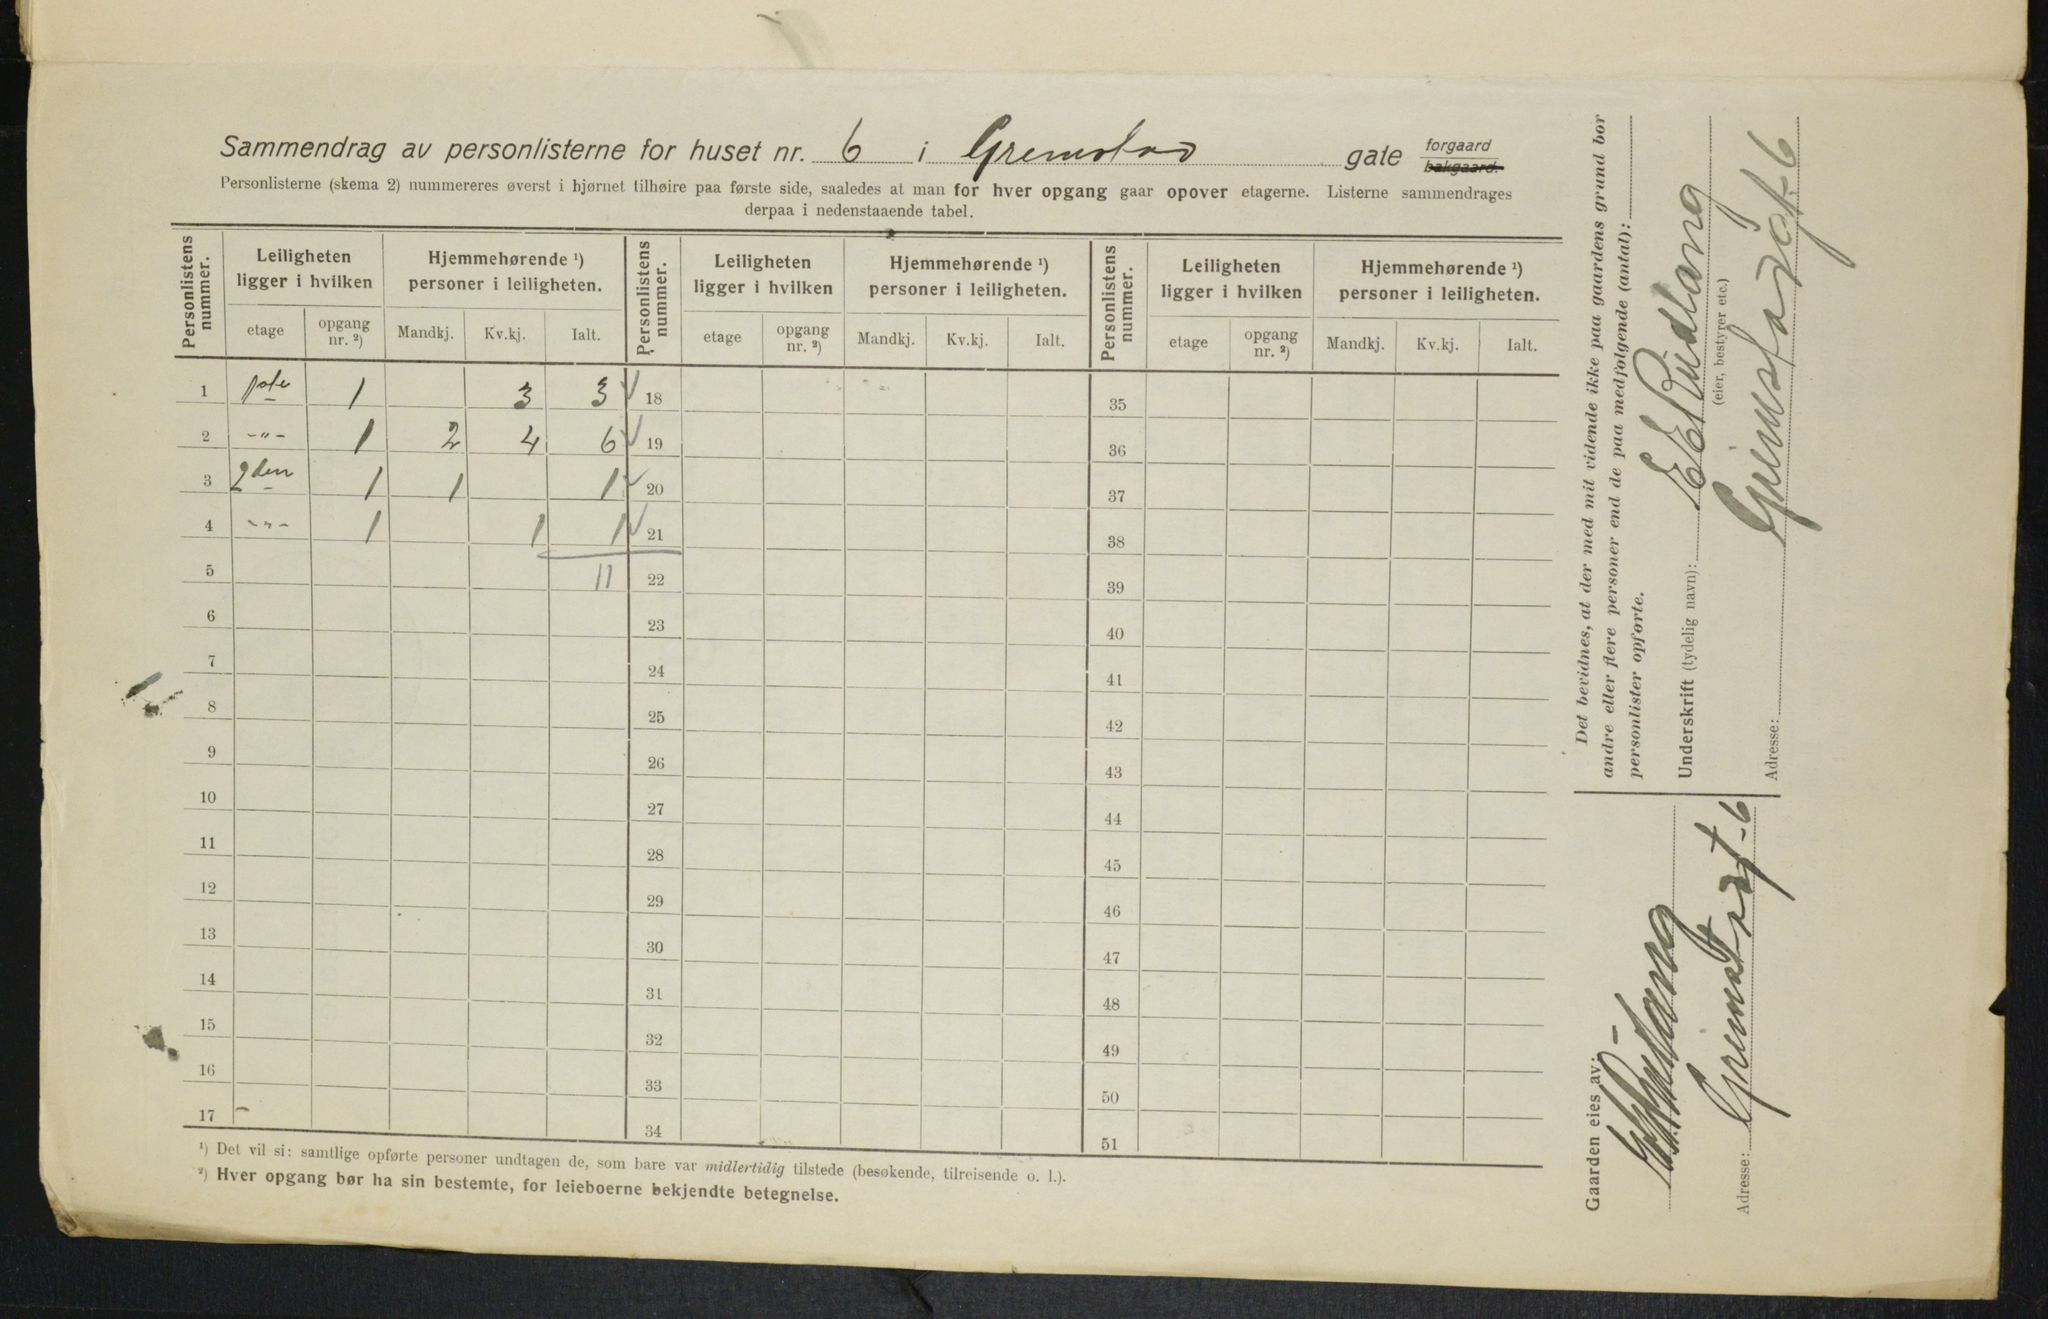 Sammendrag av personlisterne for huset nr. 6 i Gremstad gate forgaard bakgaard.
Personlisterne (skema 2) nummereres øverst i hjørnet tilhøire paa første side, saaledes at man for hver opgang gaar opover etagerne. Listerne sammendrages
derpaa i nedenstaaende tabel.
Personlistens nummer. Leiligheten ligger i hvilken Hjemmehørende ¹) personer i leiligheten. Personlistens nummer. Leiligheten ligger i hvilken Hjemmehørende ¹) personer i leiligheten. Personlistens nummer. Leiligheten ligger i hvilken Hjemmehørende ¹) personer i leiligheten.
etage opgang nr. ²) Mandkj. Kv.kj. Ialt. etage opgang nr. ²) Mandkj. Kv.kj. Ialt. etage opgang nr. ²) Mandkj. Kv.kj. Ialt.
1 1 3 3 18 35
2 -"- 1 2 4 6 19 36
3 2den 1 1 1 20 37
4 -"- 1 1 1 21 38
5 11 22 39
6 23 40
7 24 41
8 25 42
9 26 43
10 27 44
11 28 45
12 29 46
13 30 47
14 31 48
15 32 49
16 33 50
17 34 51
¹) Det vil si: samtlige opførte personer undtagen de, som bare var midlertidig tilstede (besøkende, tilreisende o. l.).
²) Hver opgang bør ha sin bestemte, for leieboerne bekjendte betegnelse.
Det bevidnes, at der med mit vidende ikke paa gaardens grund bor
andre eller flere personer end de paa medfølgende (antal):
personlister opførte.
Underskrift (tydelig navn): Rudlang
(eier, bestyrer etc.)
Grimstadgt-6
Adresse:
Gaarden eies av:
Rudlang
Grimstadgt-6
Adresse: